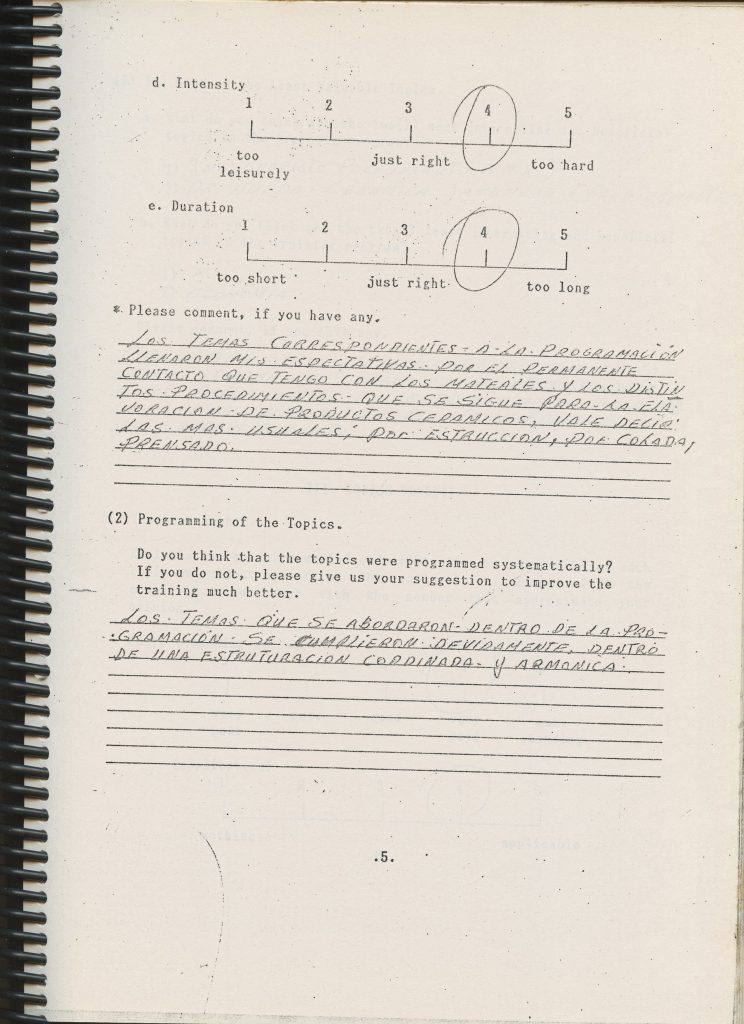 d. Intensity
1 2 3 4 5
too just right too hard
leisurely
e. Duration
1 2 3 4 5
too short just right too long
* Please comment, if you have any.
LOS TEMAS CORRESPONDIENTES A LA PROGRAMACIÓN
LLENARON MIS ESPECTATIVAS POR EL PERMANENTE
CONTACTO QUE TENGO CON LOS MATERIALES Y LOS DISTIN
TOS PROCEDIMIENTOS QUE SE SIGUE PARA LA ELA-
VORACION DE PRODUCTOS CERAMICOS, VALE DECIR:
LAS MAS USUALES; POR ESTRUCCION, POR COLADA,
PRENSADO.
(2) Programming of the Topics.
Do you think that the topics were programmed systematically?
If you do not, please give us your suggestion to improve the
training much better.
LOS TEMAS QUE SE ABORDARON DENTRO DE LA PRO-
GRAMACIÓN SE CUMPLIERON DEVIDAMENTE, DENTRO
DE UNA ESTRUTURACION CORDINADA Y ARMONICA.
.5.